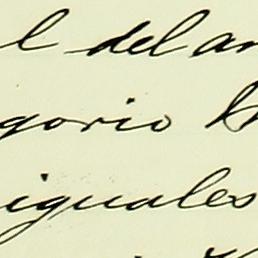 l del an
gorio
iguales